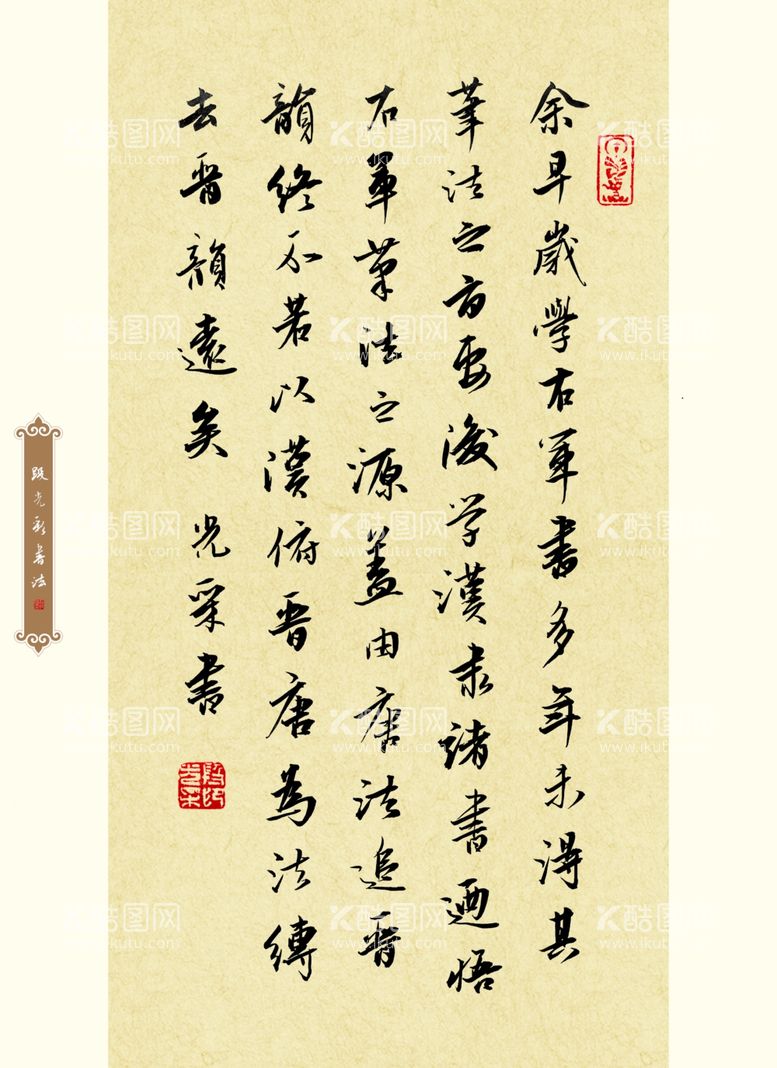 余早歲學右軍書多年未得其
筆法之旨要後学漢隶諸書迺悟
右軍筆法之源蓋由唐法追晋
韻終不若以漢俯晋唐為法縛
去晋韻遠矣 光采書
段光彩書法
酷图网
www.ikutu.com